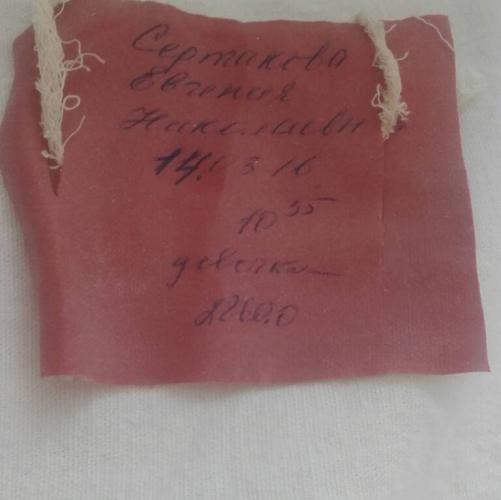 Сертакова
Евгения
Николаевн
14.03 16
10 35
девочка
2260.0